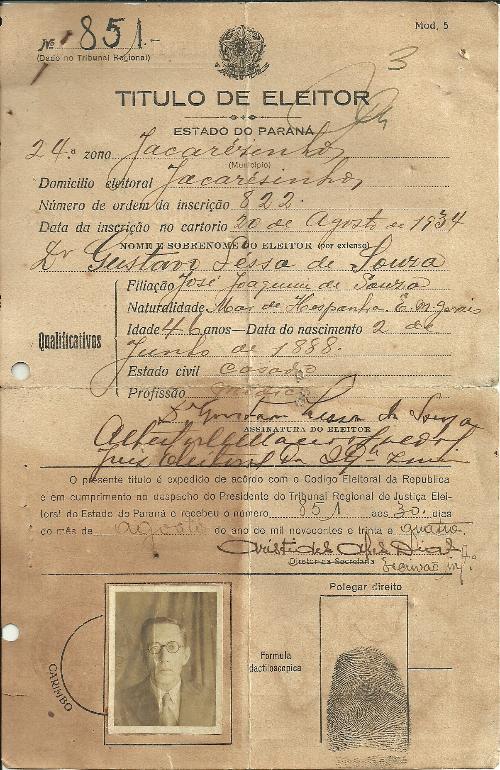 Mod, 5
Nº 851-
(Dado no Tribunal Regional)
3
TITULO DE ELEITOR
ESTADO DO PARANÁ
24.ª zona Jacarésinho,
(Municipio)
Domicilio eleitoral Jacarésinho,
Número de ordem da inscrição 822.
Data da inscrição no cartorio 20 de Agosto de 1934
NOME E SOBRENOME DO ELEITOR (por extenso)
Dr Gustavo Lessa de Souza
Qualificativos
Filiação José Joaquim de Souza
Naturalidade Mar de Hespanha. E. M. gerais
Idade 46 anos—Data do nascimento 2 de
Junho de 1888.
Estado civil casado
Profissão médico
Dr Gustavo Lessa de Souza
ASSINATURA DO ELEITOR
Juiz eleitoral da 24ª zona
O presente titulo é expedido de acôrdo com o Codigo Eleitoral da Republica
e em cumprimento ao despacho do Presidente do Tribunal Regional de Justiça Elei-
toral do Estado do Paraná e recebeu o número 851 aos 30 dias
do mês de agosto do ano de mil novecentos e trinta e quatro.
Diretor da Secretaria
CARIMBO
Formula
dactiloscopica
Polegar direito